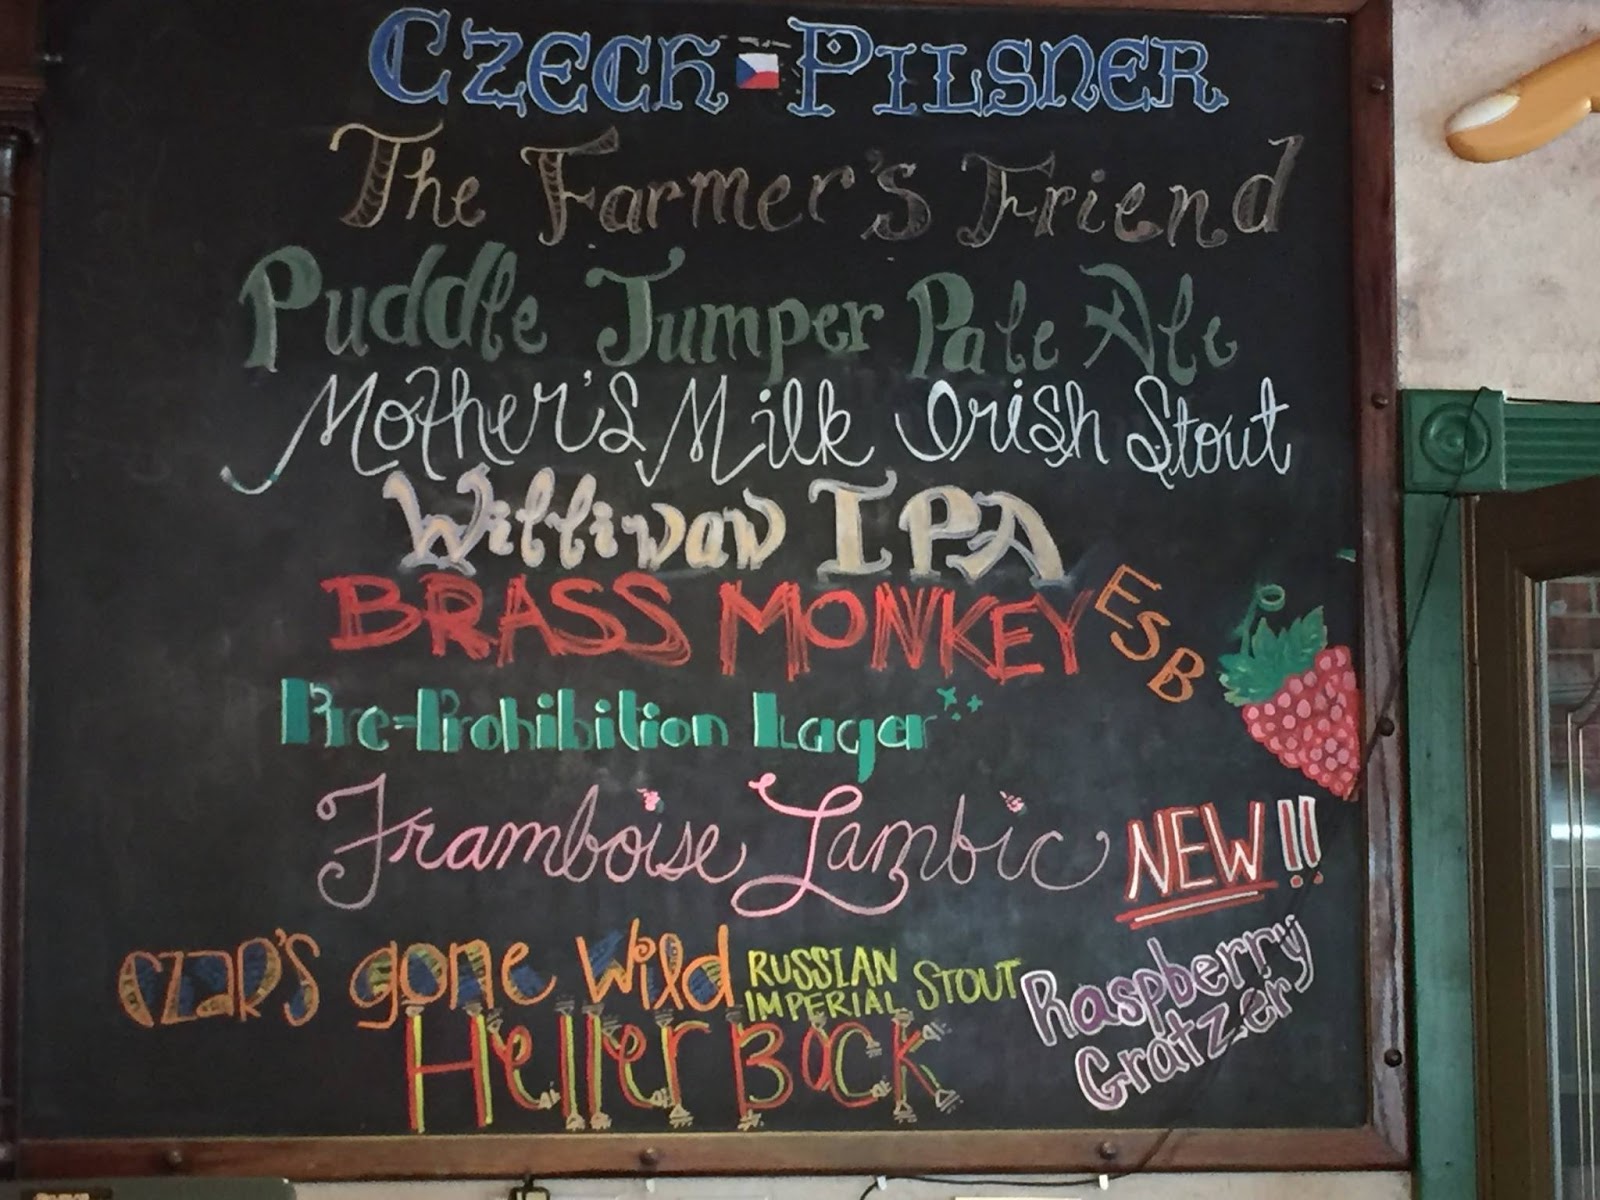 Czech Pilsner
The Farmer's Friend
Puddle Jumper Pale Ale
Mother's Milk Irish Stout
Williwaw IPA
BRASS MONKEY ESB
Pre-Prohibition Lager
Framboise Lambic NEW!!
Czar's gone Wild RUSSIAN IMPERIAL STOUT
Raspberry Gratzer
Heller Bock